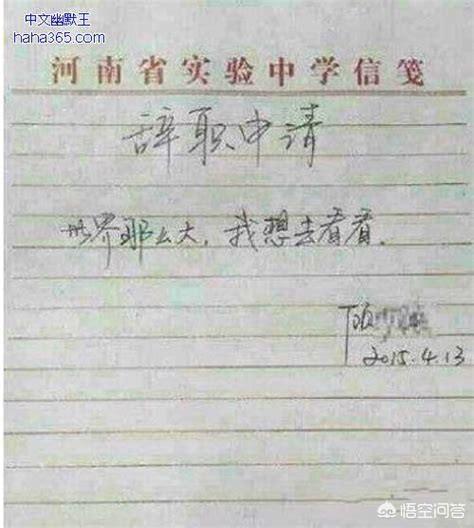 中文幽默王
haha365.com
河南省实验中学信笺
辞职申请
世界那么大，我想去看看。
顾
2015.4.13
悟空问答